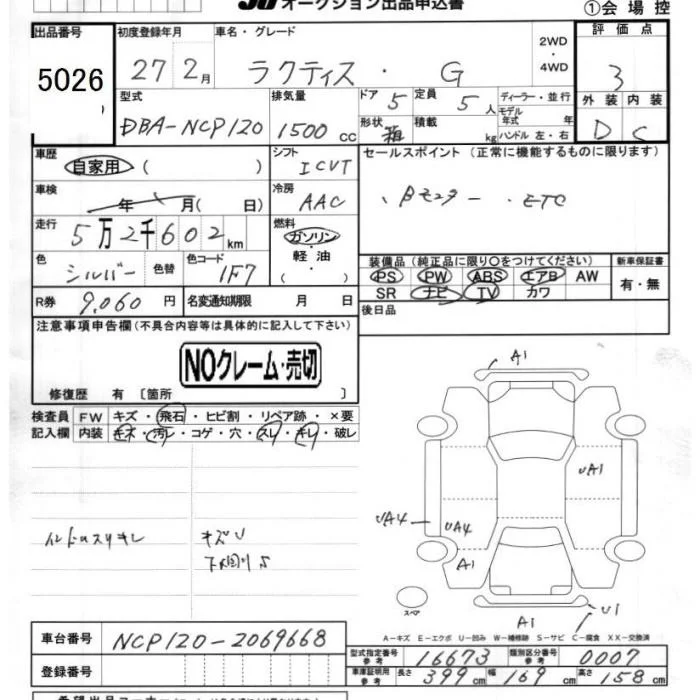 オークション出品申込書 ①会場控
出品番号 初度登録年月 車名・グレード 2WD・4WD 評価点
5026 27 2月 ラクティス・G 3
型式 排気量 ドア 5 定員 5人 ディーラー・並行 外装 内装
DBA-NCP120 1500cc 形状 箱 積載 kg モデル年式 年 ハンドル 左・右 D C
車歴 自家用 ( ) シフト ICVT セールスポイント (正常に機能するものに限ります)
車検 年 月( 日) 冷房 AAC 、Bモニター ・ETC
走行 5万2千602km 燃料 ガソリン・軽油・( )
色 シルバー 色替 色コード 1F7 装備品 (純正品に限り○をつけてください) 新車保証書
PS PW ABS エアB AW 有・無
SR ナビ TV カワ
R券 9,060円 名変通知期限 月 日 後日品
注意事項申告欄(不具合内容等は具体的に記入して下さい)
NOクレーム・売切
修復歴 有 [箇所 ]
検査員 FW キズ・飛石・ヒビ割・リペア跡・×要
記入欄 内装 キズ・汚レ・コゲ・穴・スレ・キレ・破レ
A1
UA1
UA4
UA4
A1
キズU
下回りS
スペア
A1 U1
A-キズ E-エクボ U-凹み W-補修跡 S-サビ C-腐食 XX-交換済
車台番号 NCP120-2069668
型式指定番号 参考 16673 類別区分番号 参考 0007
登録番号 車庫証明用 参考 長さ 399cm 幅 169cm 高さ 158cm